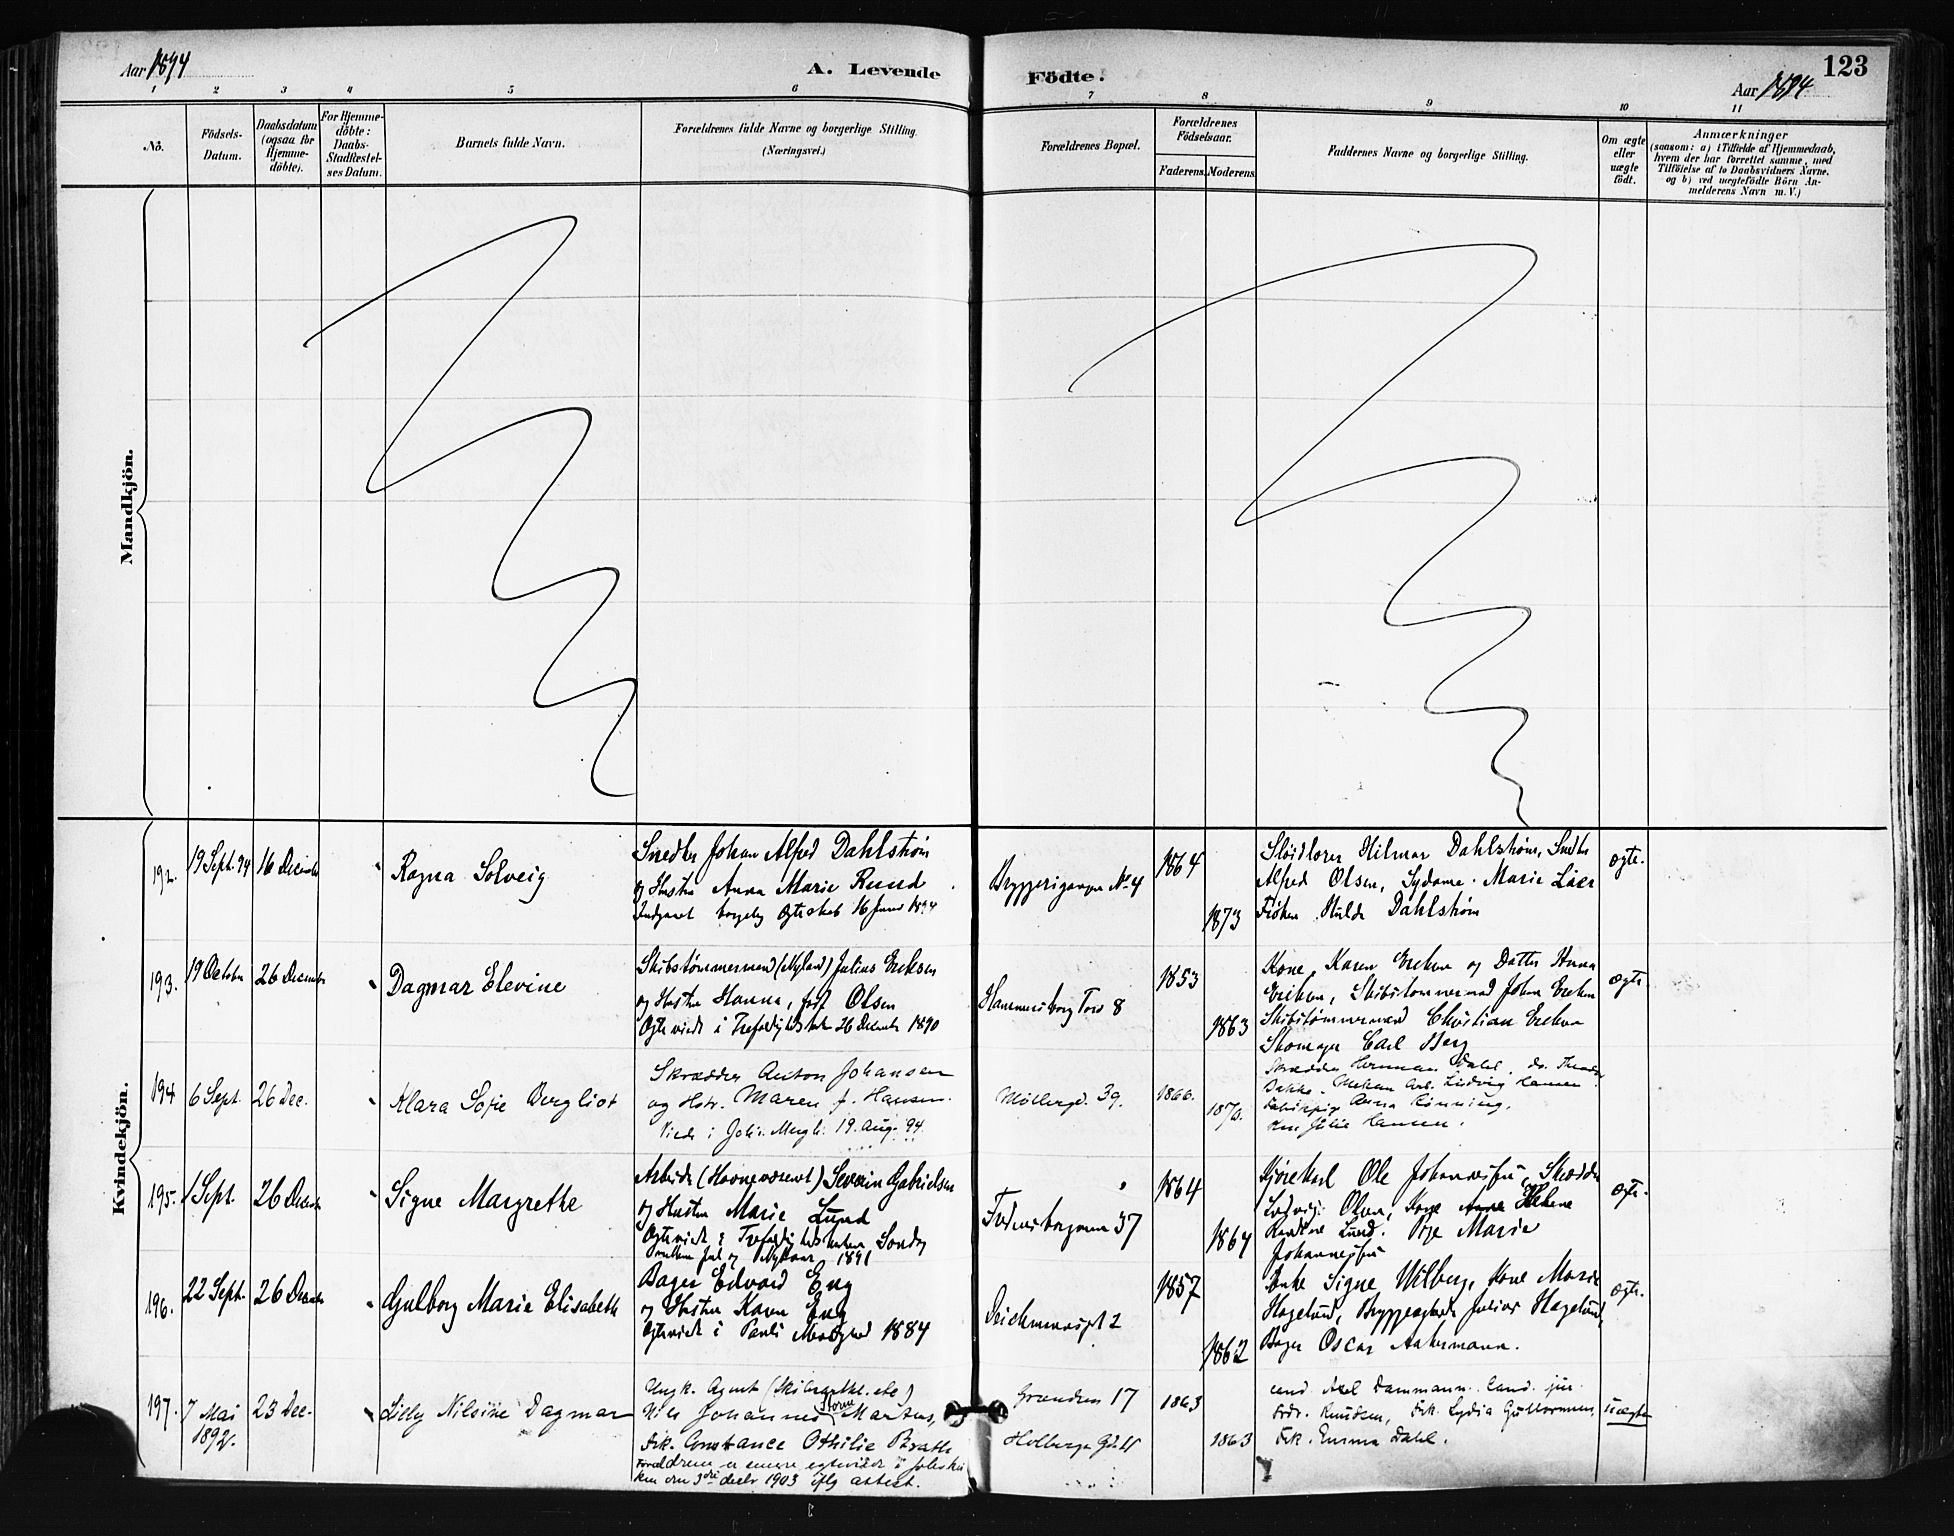 Aar 1894
A. Levende
Födte.
Aar 1894
123
1 2 3 4 5 6 7 8 9 10 11
No.
Födsels-
Datum.
Daabsdatum
(ogsaa for
Hjemme-
döbte).
For Hjemme-
döbte:
Daabs-
Stadfestel-
ses Datum.
Barnets fulde Navn.
Forældrenes fulde Navne og borgerlige Stilling.
(Næringsvei.)
Forældrenes Bopæl.
Forældrenes
Födselsaar.
Faderens.
Moderens.
Faddernes Navne og borgerlige Stilling.
Om ægte
eller
uægte
födt.
Anmærkninger
(saasom: a) i Tilfælde af Hjemmedaab,
hvem der har forrettet samme, med
Tilföielse af to Daabsvidners Navne.
og b) ved uægtefödte Börn An-
melderens Navn m. V.)
Mandkjön.
Kvindekjön.
192.
19 Sept. 94
16 December
Ragna Solveig
Snedker Johan Alfred Dahlstrøm
og Hustru Anna Marie Rund
Indgaaet borgerlig Ægteskab 16 Juni 1894
Bryggerigangen No 4
1864
1873
Hilmar Dahlstrøm, Snedker
Alfred Olsen, Sydame Marie
Frøken Hulda Dahlstrøm
ægte.
193.
19 October
26 December
Dagmar Elevine
Skibstømmermand (Nyland) Julius Eriksen
og Hustru Hanna, født Olsen
Ægteviede i Trefoldighedskirken 26 December 1890
Hammersborg Torv 8
1853
1863
Kone Karen Eriksen og Datter Anna
Eriksen, Skibstømmermand Johan Eriksen
Skibstømmermand Christian Eriksen
Skomager Carl Berg
ægte
194
6 Sept.
26 Dec.
Klara Sofie Bergliot
Skrædder Anton Johansen
og Hstr. Maren f. Hansen.
Viede i Joh's Mengh. 19. Aug. 94
Møllergd. 39.
1866.
1870.
Skrædder Herman Dahl,
Bakke, Ludvig Hansen
Anna Rønning,
Julie Hansen.
195.
1 Sept.
26 December
Signe Margrethe
Arbeider (Havnevæsenet) Severin Gabrielsen
og Hustru Marie Lund
Ægteviede i Trefoldighedskirken Søndag
mellem Jul og Nytaar 1891
Fredensborgveien 37
1864
1864
Kjørekarl Ole Johannessen, Skrædder
Ludvig Olsen, Kone Anna Helene
Lund. Pige Marie
Johannessen
ægte.
196.
22 Sept.
26 December
Gulborg Marie Elisabeth
Bager Edvard Eng
og Hustru Karen Eng
Ægteviede i Pauli Menighed 1884
Deichmansgt 2
1857
1862
Enke Signe Wilberg, Kone Marie
Hagelund, Bryggearbeider Julius Hagelund,
Bager Oscar Ankermann.
ægte.
197.
7 Mai
1892.
23 Dec.
Lilly Nilsine Dagmar
Ungk. Agent
Nils Johannes Storm Martens,
Frk. Constance Othilie Brath
Forældrene er senere ægteviede i Johs kir
ken den 3die decbr 1903 iflg attest.
Grændsen 17
Holbergs Gd.
1863
1863
cand. Axel Dammann. Cand. jur.
Fdr. Knudsen, Frk. Lydia Gulbrannsen,
Frk. Emma Dahl.
uægte